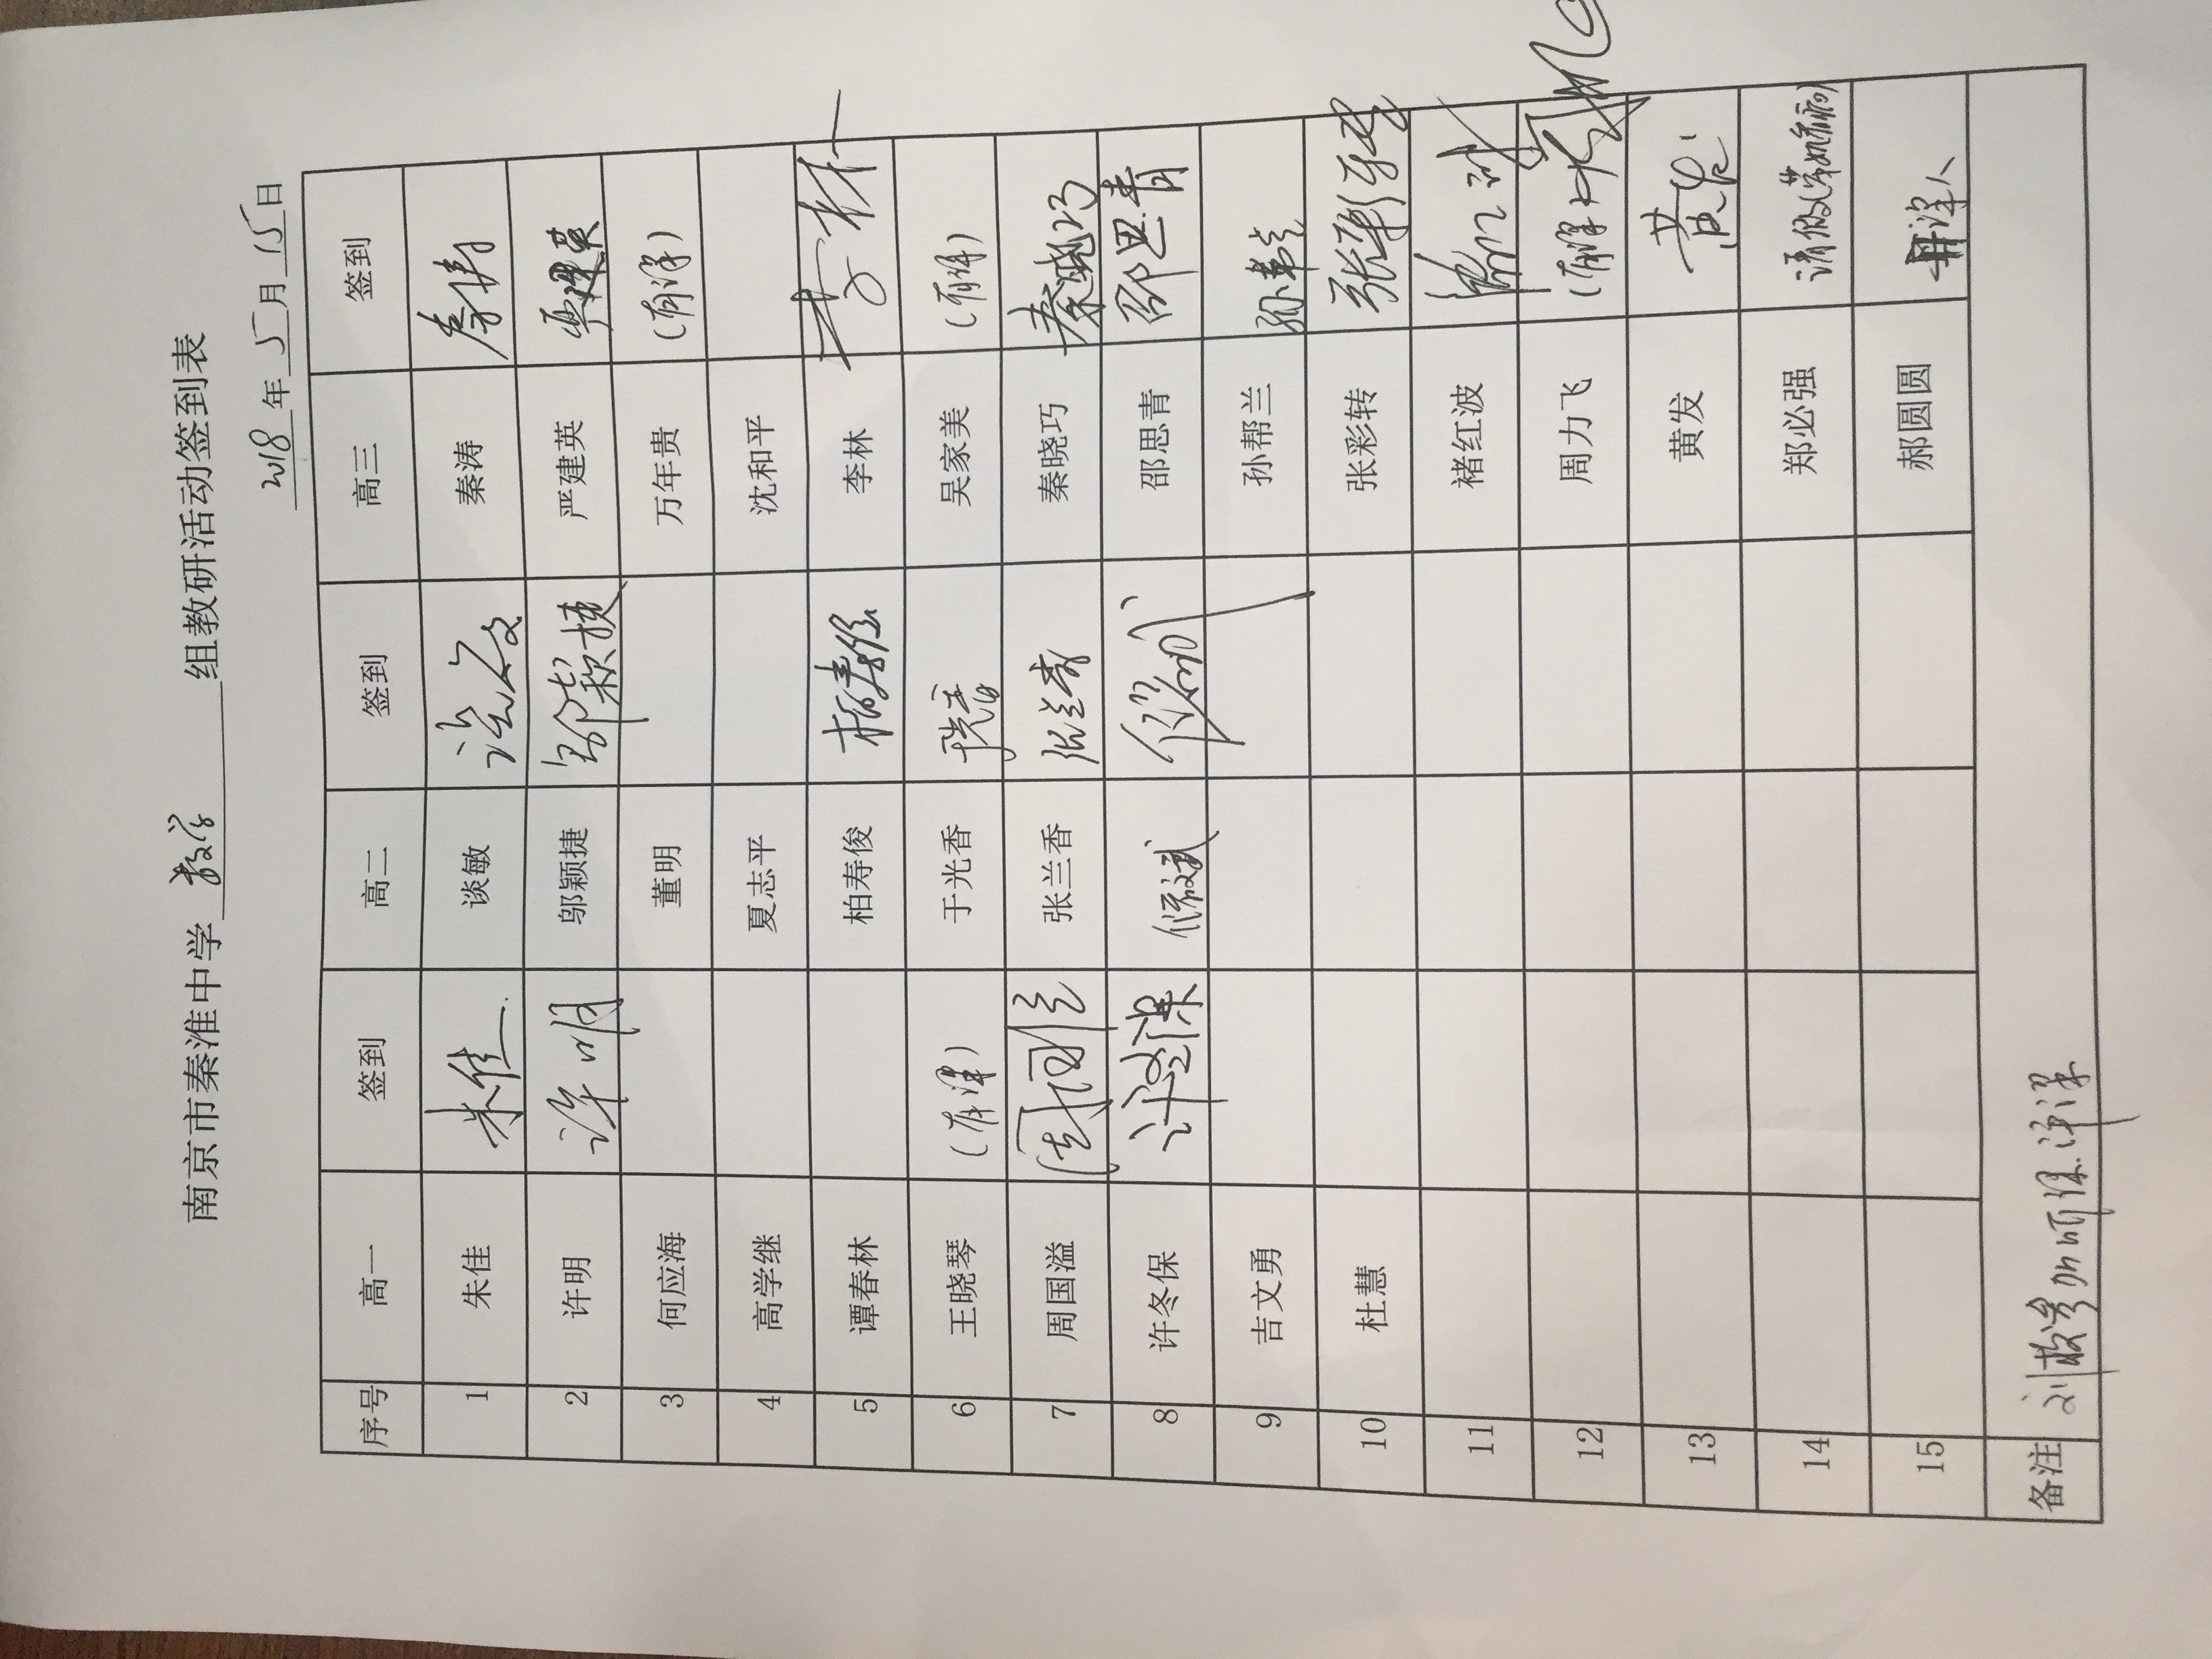 南京市秦淮中学 数学 组教研活动签到表
2018年5月15日
序号 高一 签到 高二 签到 高三 签到
1 朱佳 朱佳 谈敏 谈敏 秦涛 秦涛
2 许明 许明 邬颖捷 邬颖捷 严建英 严建英
3 何应海 董明 万年贵 (有课)
4 高学继 夏志平 沈和平
5 谭春林 柏寿俊 柏寿俊 李林 李林
6 王晓琴 (有课) 于光香 于光香 吴家美 (有课)
7 周国溢 周国溢 张兰香 张兰香 秦晓巧 秦晓巧
8 许冬保 许冬保 邵思青 邵思青
9 吉文勇 孙帮兰 孙帮兰
10 杜慧 张彩转 张彩转
11 褚红波
12 周力飞 (有课)
13 黄发 黄发
14 郑必强
15 郝圆圆
备注 刘校参加听课.评课